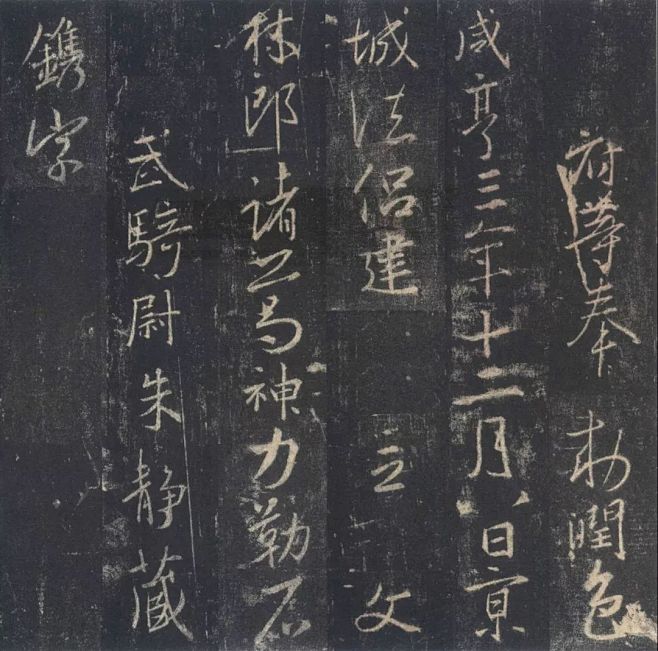 府等奉 敕潤色
咸亨三年十二月八日京
城法侶建 立 文
林郎諸葛神力勒石
武騎尉朱静藏
鐫字